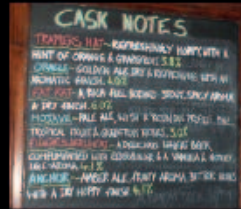 CASK NOTES
TRAMPERS HAT - REFRESHINGLY HOPPY WITH A
HINT OF ORANGE & GRAPEFRUIT 3.8%
GOLDEN ALE, DRY & REFRESHING WITH AN
AROMATIC FINISH. 4.0%
FAT KAT - A RICH FULL BODIED STOUT, SPICY AROMA
& DRY FINISH. 6.0%
MOJAVE - PALE ALE, WITH A RESIN
TROPICAL FRUIT & GRAPEFRUIT NOTES. 5.0%
WHEAT BEER,
COMPLEMENTED WITH & A VANILLA &
4.1%
ANCHOR - AMBER ALE, FRUITY AROMA, BITTER NOTES
WITH A DRY HOPPY FINISH